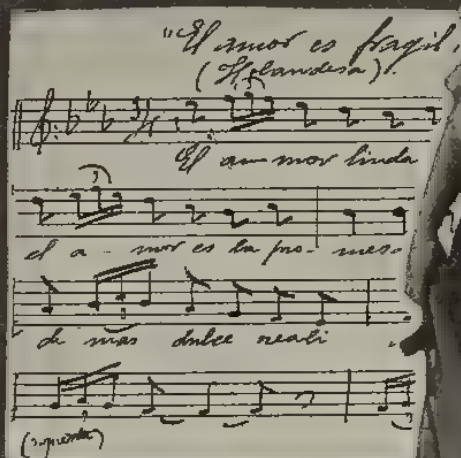 "El amor es fragil
(Holandesa).
El a- mor linda
el a - mor es la pro- mes-
de mas dulce reali